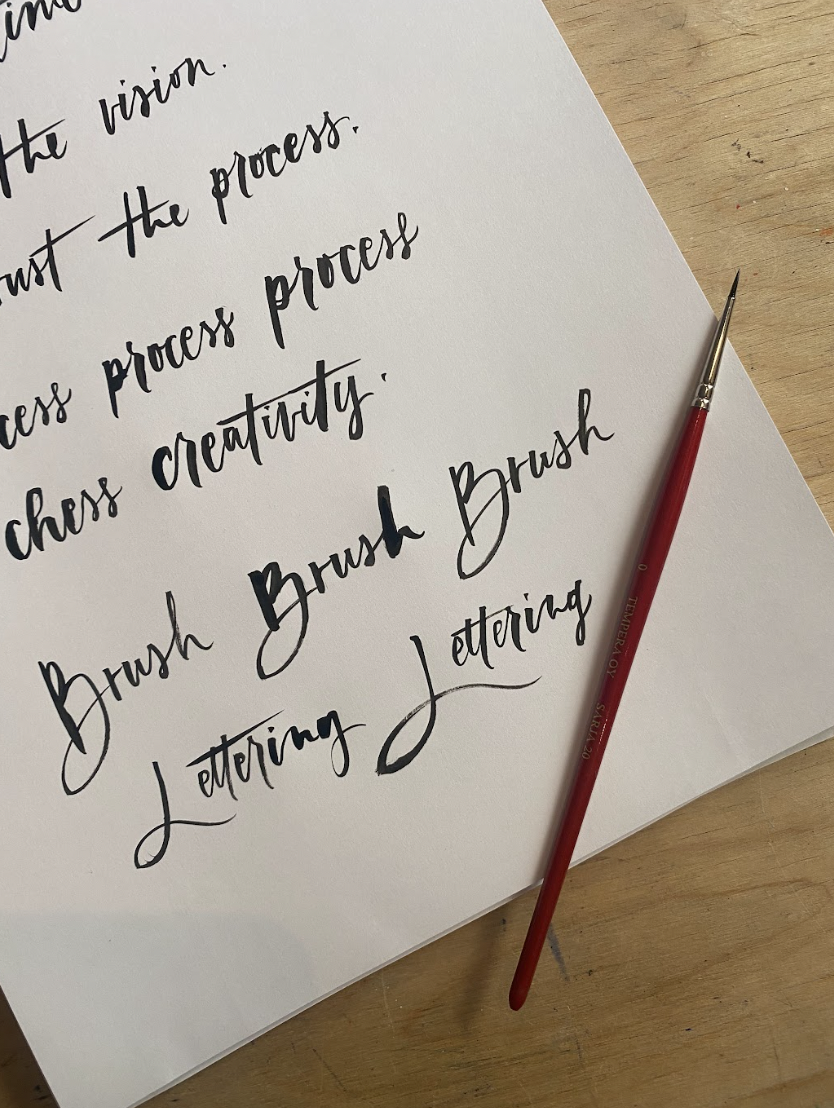 the vision.
the process.
process process
chess creativity.
Brush Brush Brush
Lettering Lettering
0 TEMPERA OY SARJA 20